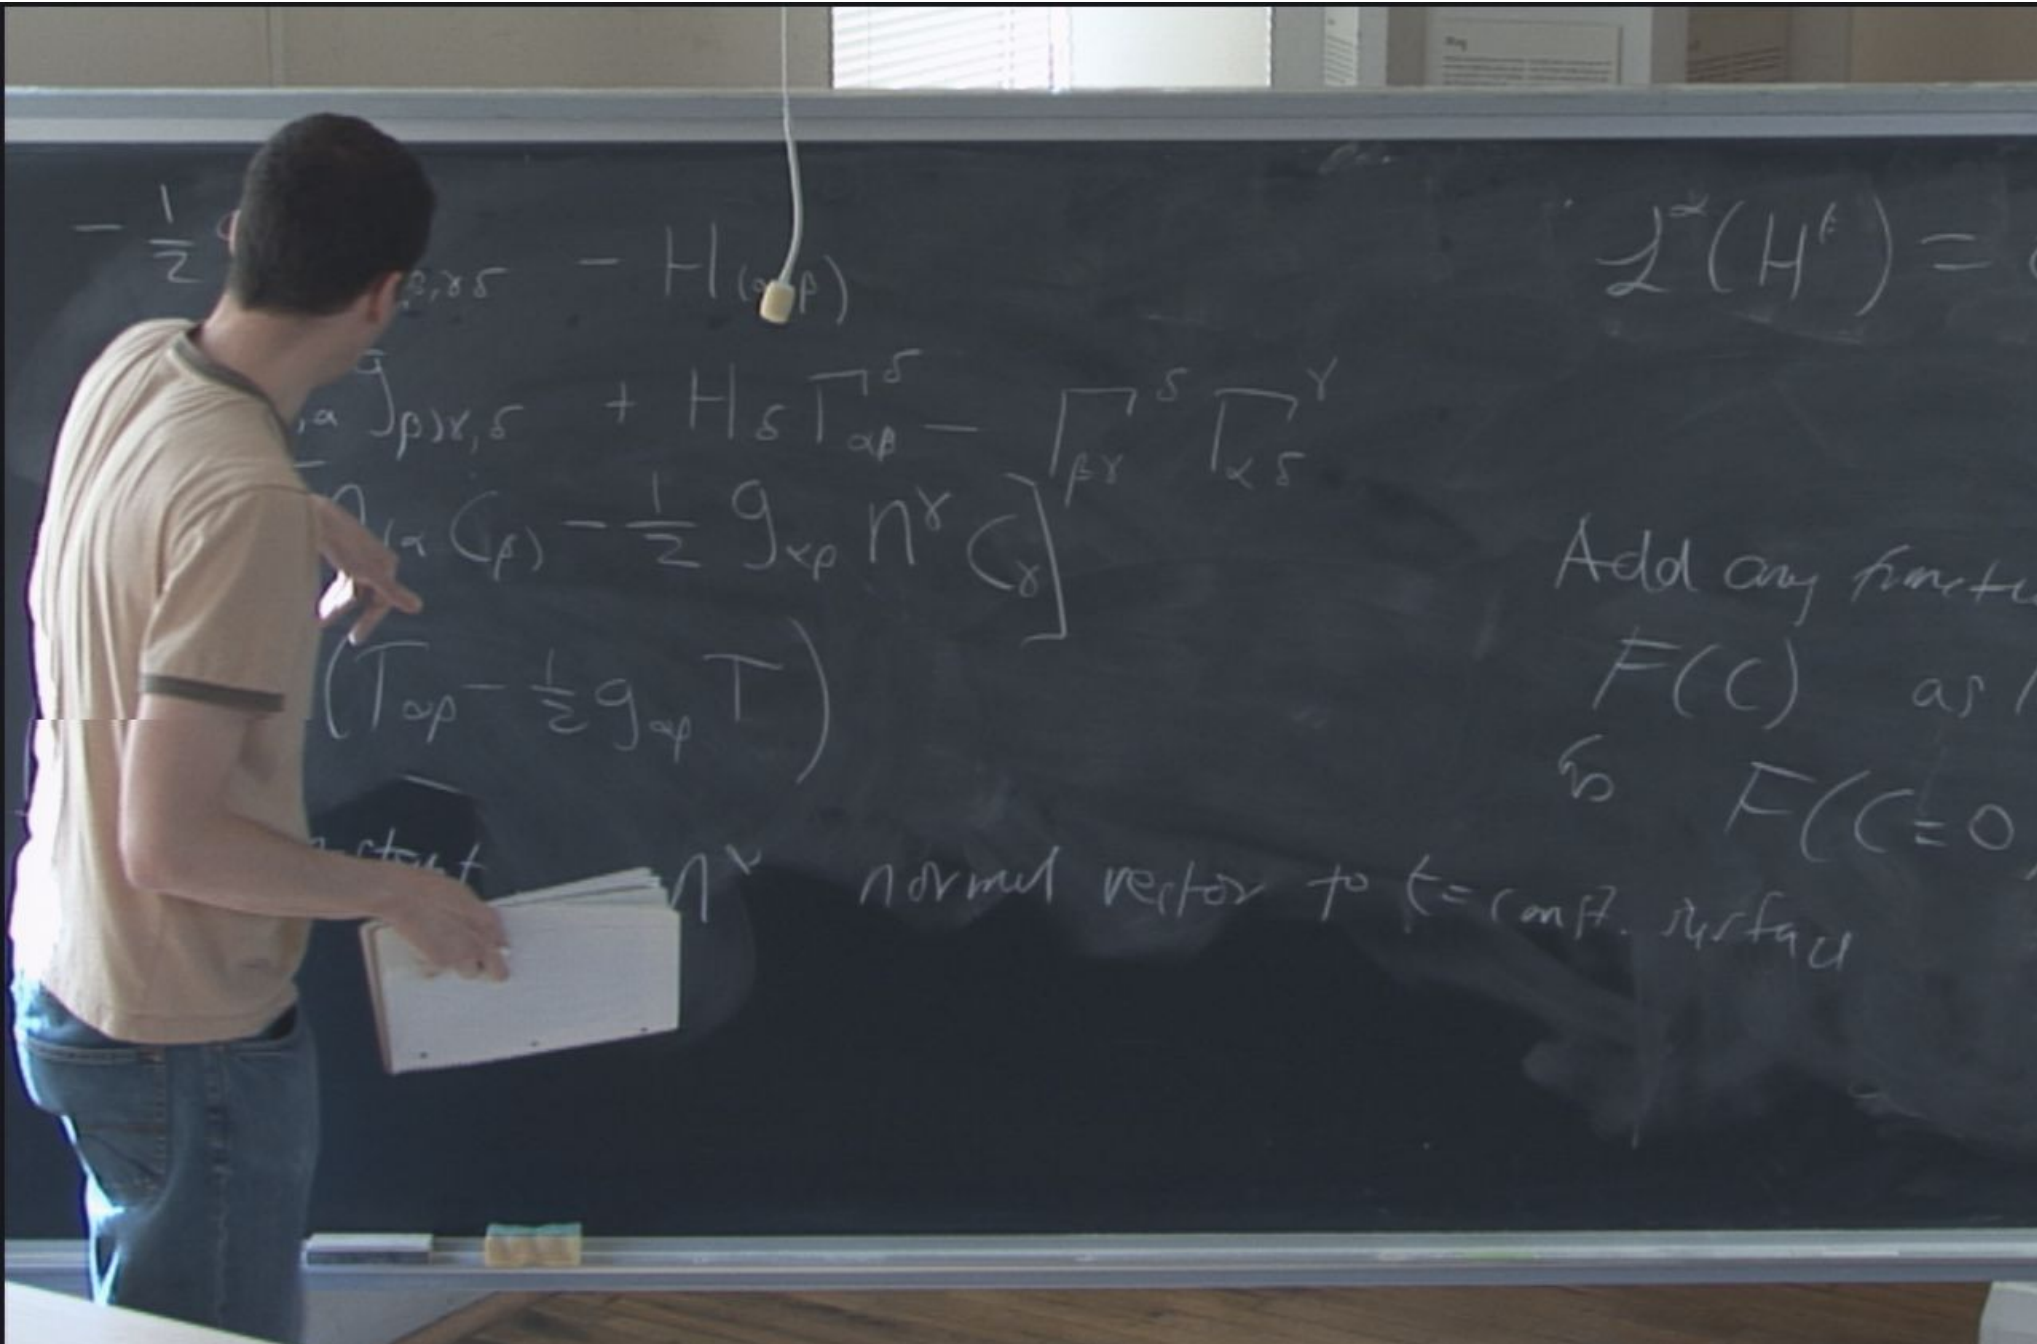 - 1/2 β,γδ - H(αβ)
,α g β)γ,δ + H_δ Γ^δ_αβ - Γ^δ_βγ Γ^γ_αδ
n(α C_β) - 1/2 g_αβ n^γ C_γ ]
(T_αβ - 1/2 g_αβ T)
n^γ normal vector to t = const. surface
ℒ^α(H^β) =
Add any
F(C) as
so F(C=0